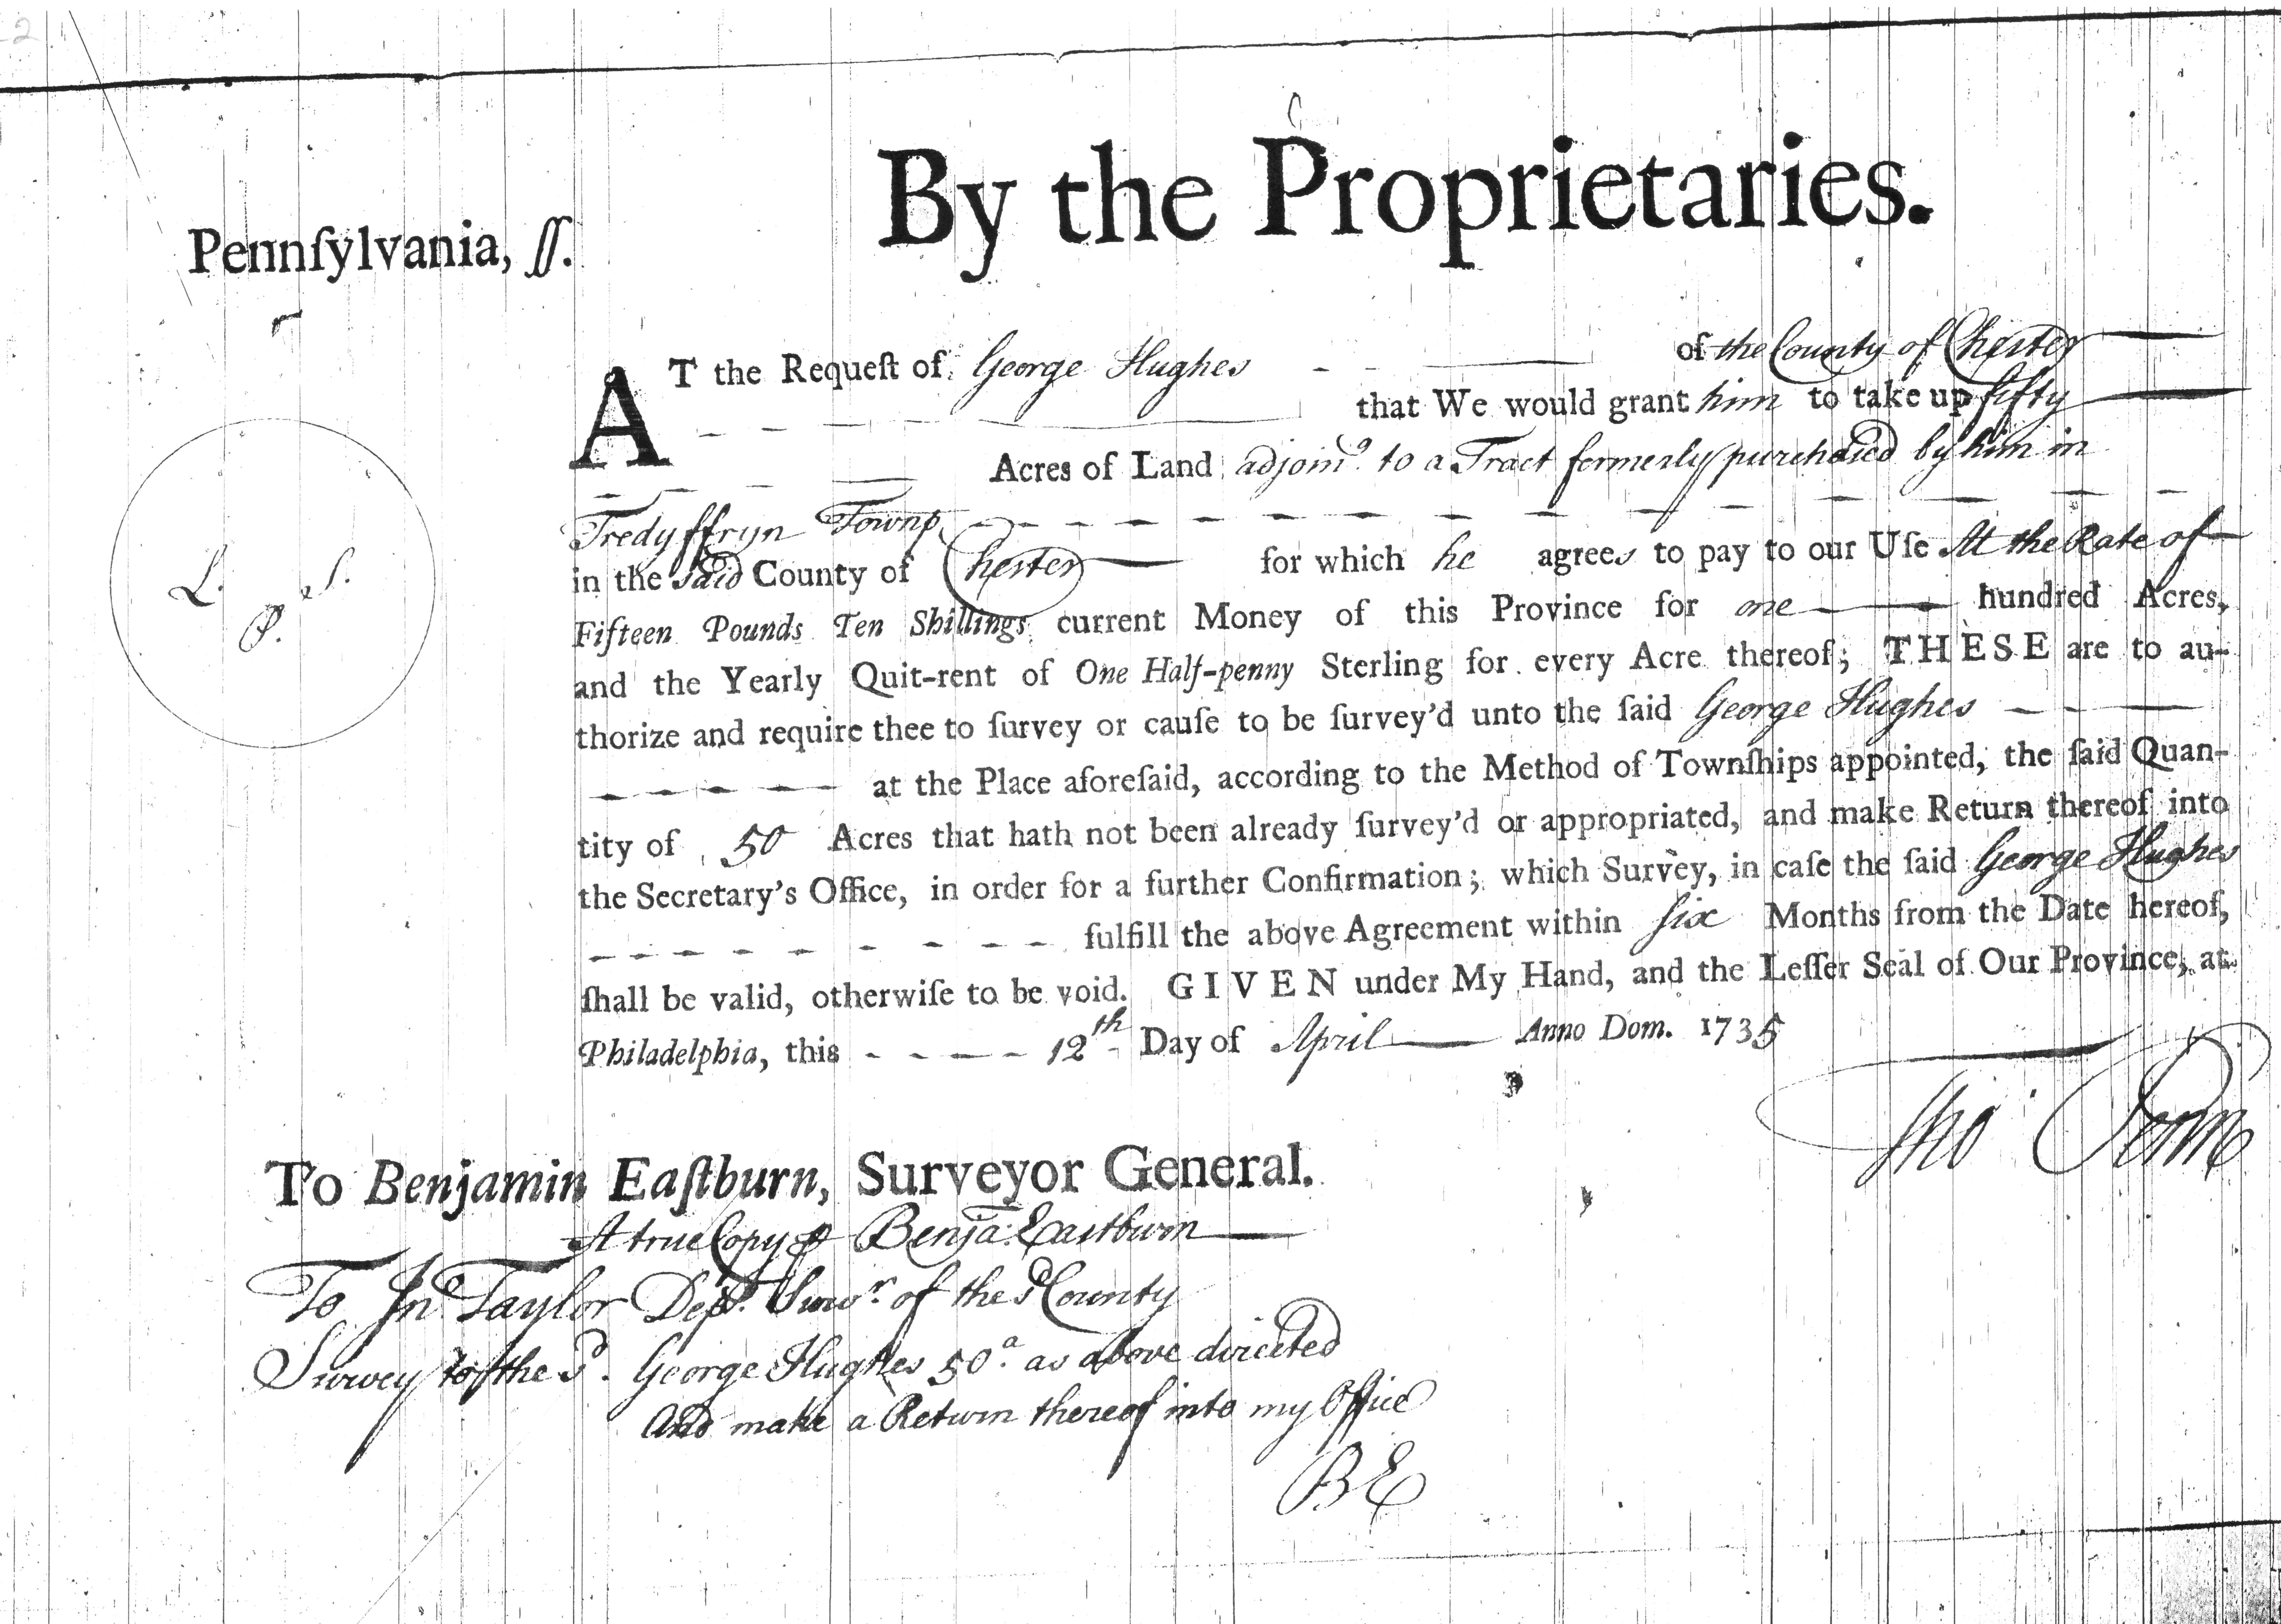 By the Proprietaries.
Pennſylvania, ſſ.
AT the Requeſt of George Hughes of the County of Chester
that We would grant him to take up fifty
Acres of Land adjoinᵍ. to a Tract formerly purchased by him in
Tredyffryn Townp.
in the said County of Chester for which he agrees to pay to our Uſe At the Rate of
Fifteen Pounds Ten Shillings current Money of this Province for one hundred Acres,
and the Yearly Quit-rent of One Half-penny Sterling for every Acre thereof; THESE are to au-
thorize and require thee to ſurvey or cauſe to be ſurvey'd unto the ſaid George Hughes
at the Place aforeſaid, according to the Method of Townſhips appointed, the ſaid Quan-
tity of 50 Acres that hath not been already ſurvey'd or appropriated, and make Return thereof into
the Secretary's Office, in order for a further Confirmation; which Survey, in caſe the ſaid George Hughes
fulfill the above Agreement within six Months from the Date hereof,
ſhall be valid, otherwiſe to be void. GIVEN under My Hand, and the Leſſer Seal of Our Province, at
Philadelphia, this 12th Day of April Anno Dom. 1735
L. S.
P.
Tho Penn
To Benjamin Eaſtburn, Surveyor General.
A true Copy ⅌ Benja. Eastburn
To Jnº Taylor Depʸ. Survʳ. of the sᵈ County
Survey to the sᵈ. George Hughes 50ᵃ. as above directed
And make a Return thereof into my Office
BE